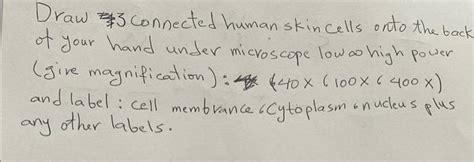 Draw 3 connected human skin cells onto the back
of your hand under microscope low high power
(give magnification): (40x (100x (400x)
and label: cell membrance (Cytoplasm nucleus plus
any other labels.